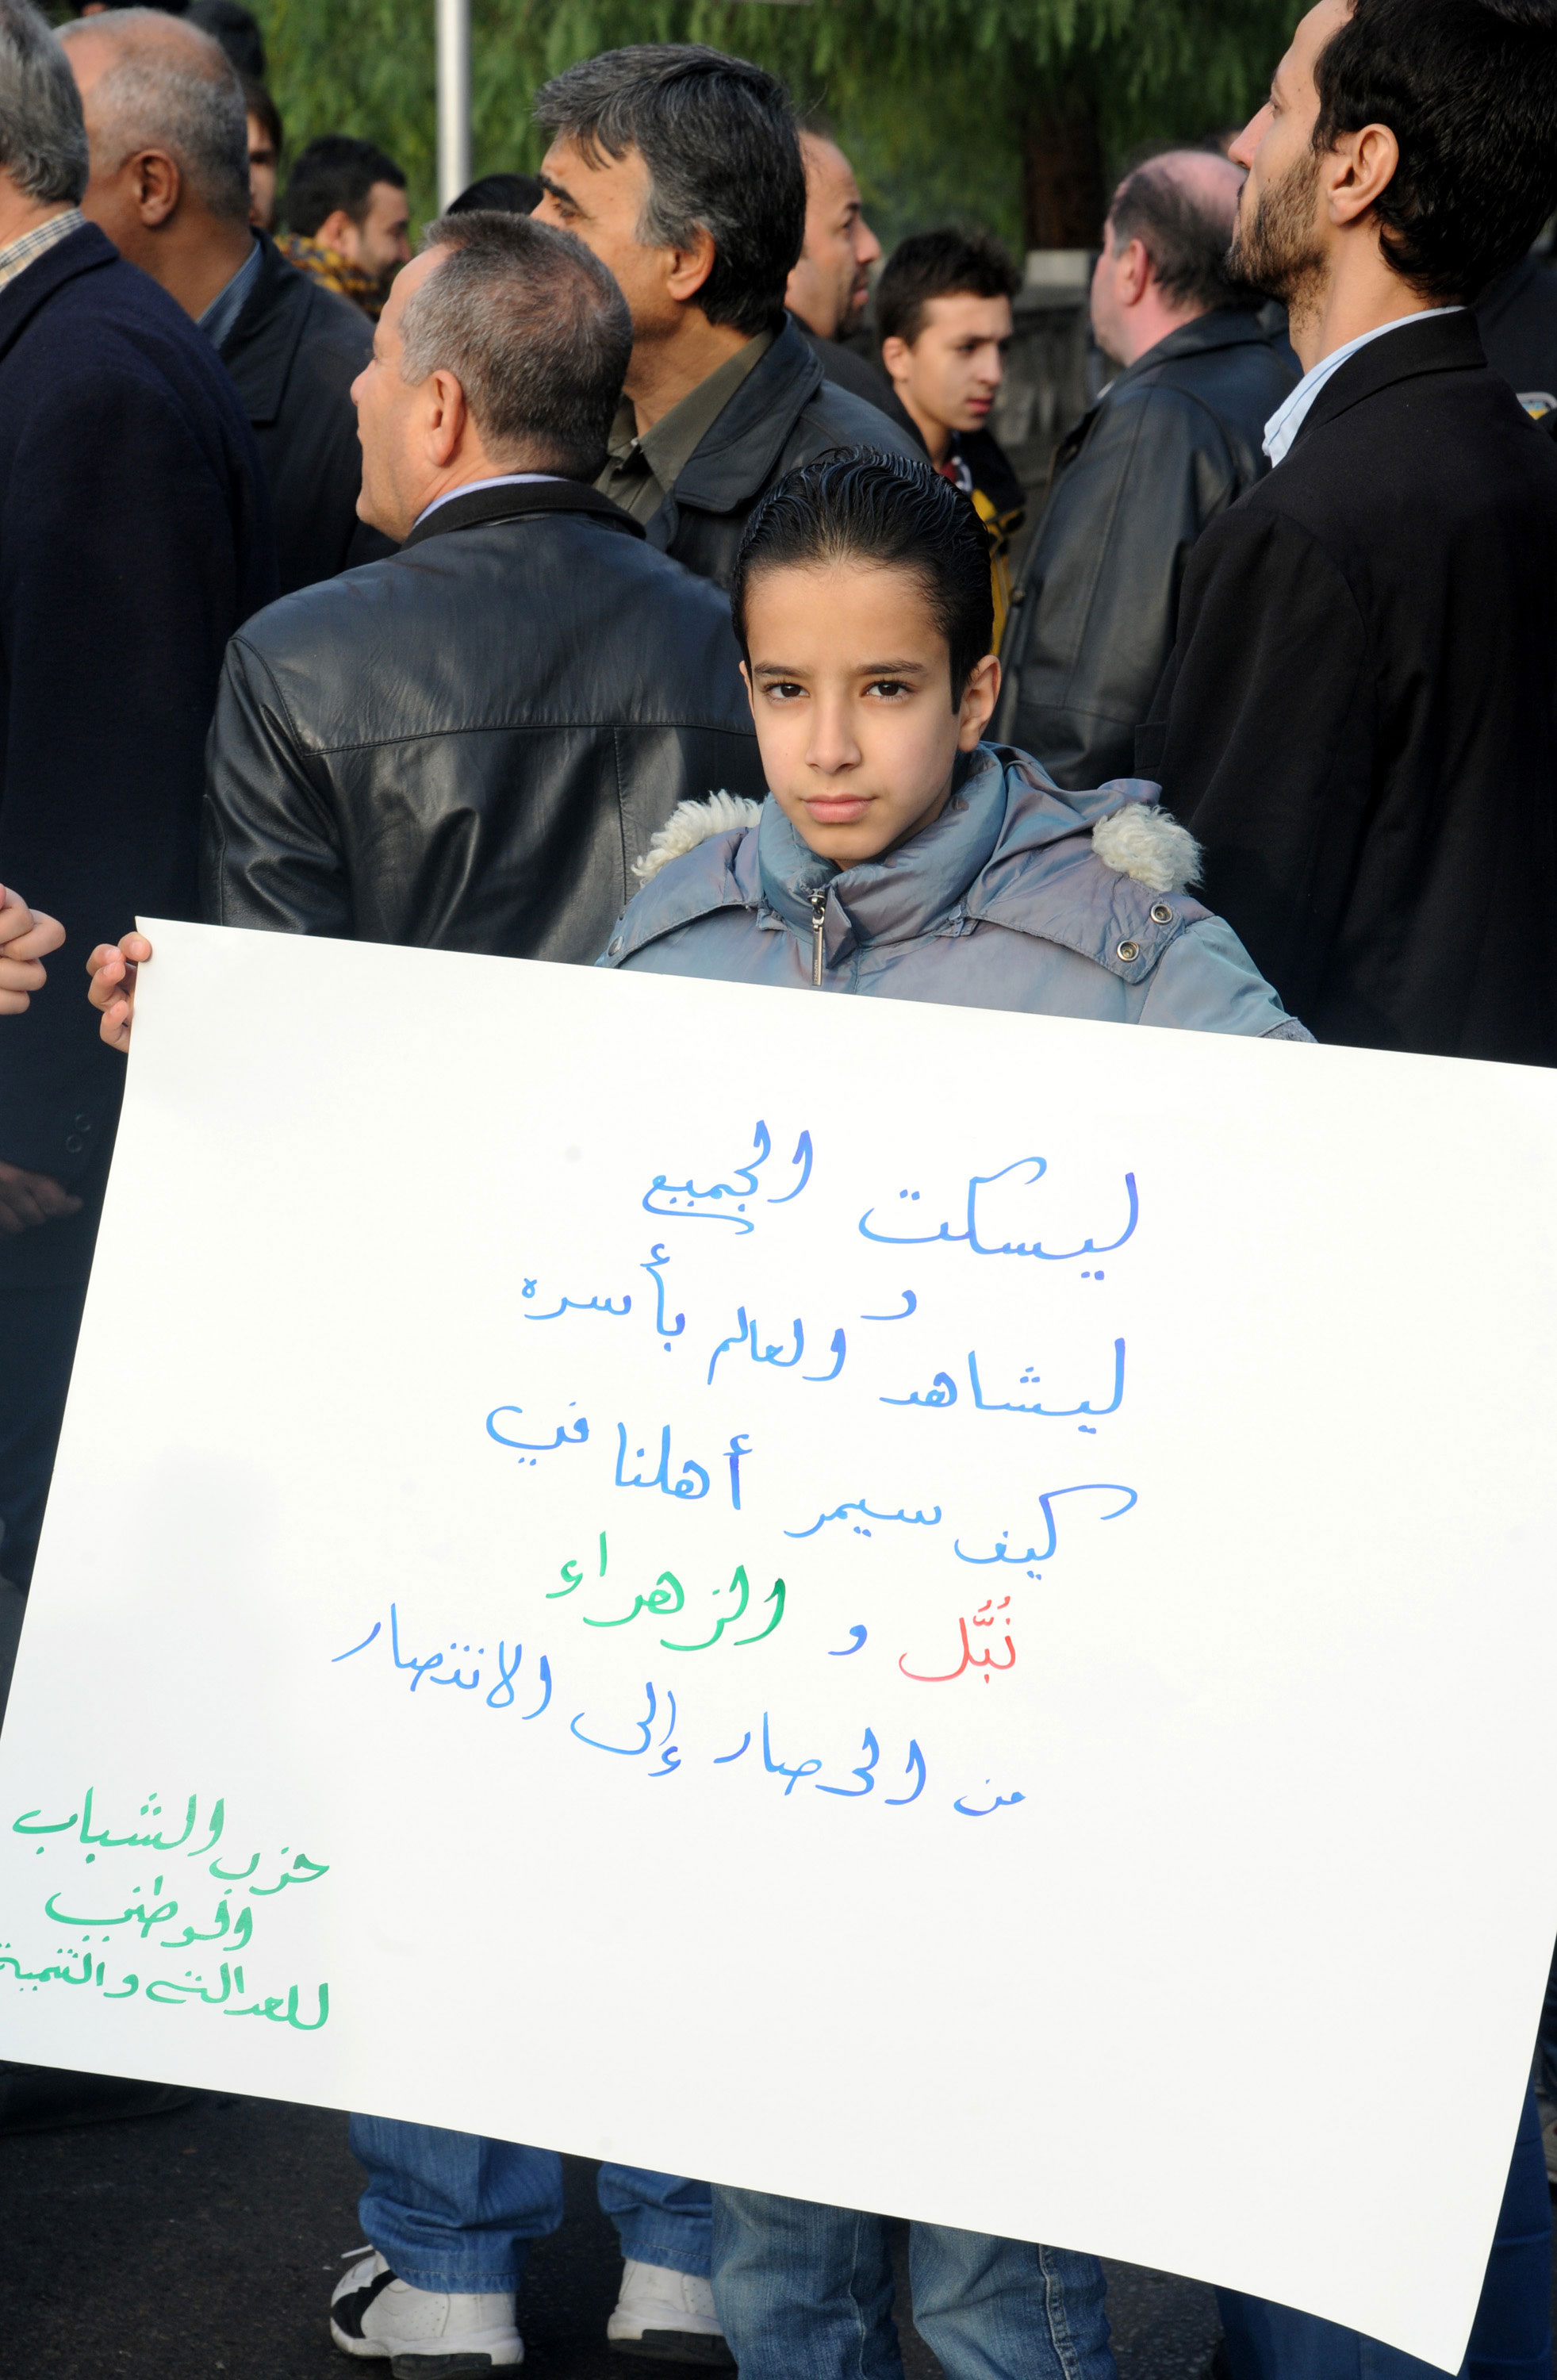 ليسكت الجميع
و
ليشاهد العالم بأسره
كيف سيمر أهلنا في
نُبُّل و الزهراء
من الحصار إلى الانتصار
حزب الشباب
الوطني
للعدالة والتنمية